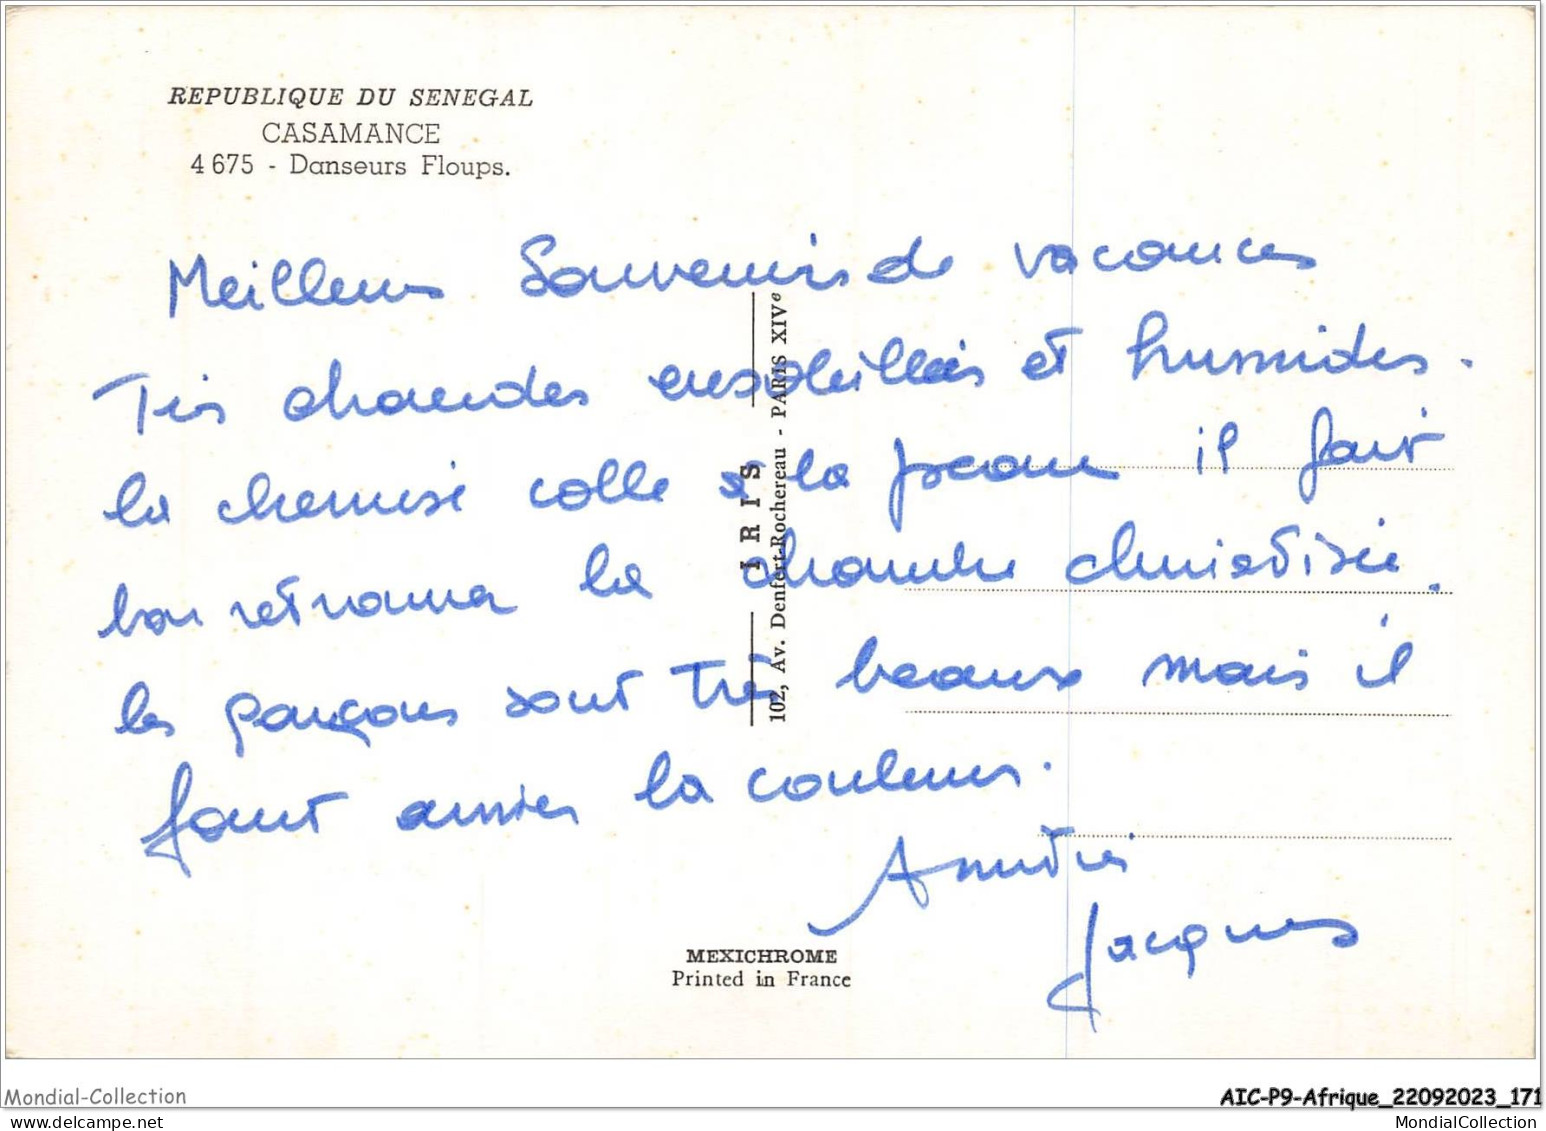 REPUBLIQUE DU SENEGAL
CASAMANCE
4 675 - Danseurs Floups.
Meilleurs Souvenirs de vacances
Très chaudes ensoleillées et humides.
la chemise colle à la peau il fait
bon retrouver la chambre climatisée.
les garçons sont très beaux mais il
faut aimer la couleur.
André
Jacques
IRIS
102, Av. Denfert-Rochereau - PARIS XIVe
MEXICHROME
Printed in France
Mondial-Collection
AIC-P9-Afrique_22092023_171
MondialCollection